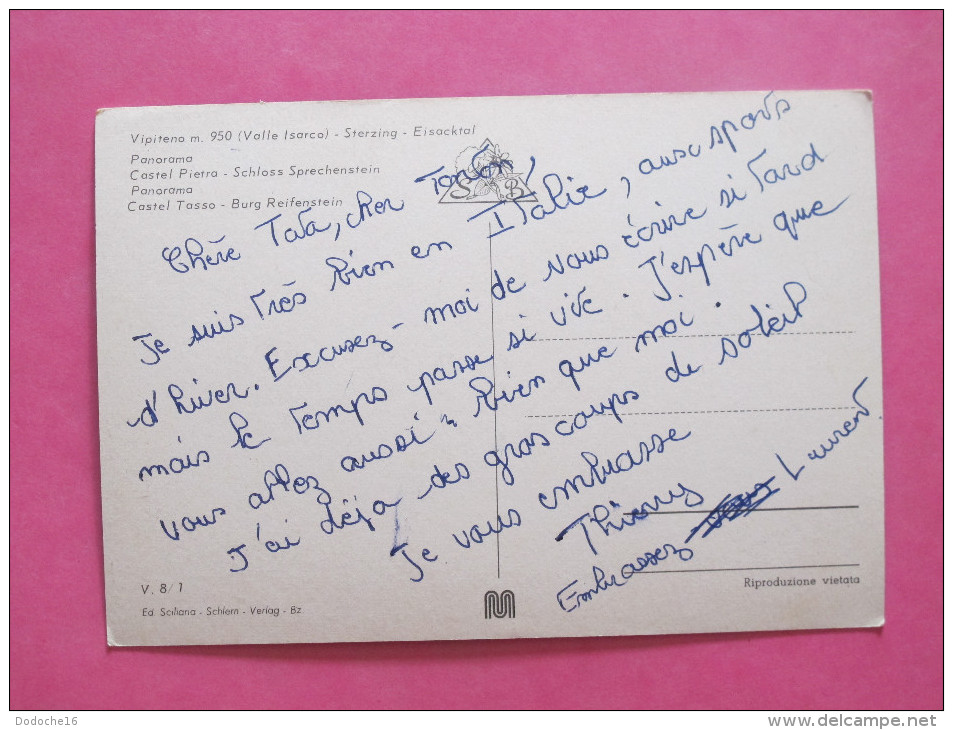 Vipiteno m. 950 (Valle Isarco) - Sterzing - Eisacktal
Panorama
Castel Pietra - Schloss Sprechenstein
Panorama
Castel Tasso - Burg Reifenstein
S B
Chère Tata, cher Tonton,
Je suis très bien en Italie, aux sports
d'hiver. Excusez-moi de vous écrire si tard
mais le temps passe si vite. J'espère que
vous allez aussi bien que moi.
J'ai déjà des gros coups de soleil
Je vous embrasse
Thierry
Embrassez Laurent.
V. 8/1
Ed. Sciliana - Schlern - Verlag - Bz
Riproduzione vietata
Dodoche16
www.delcampe.net